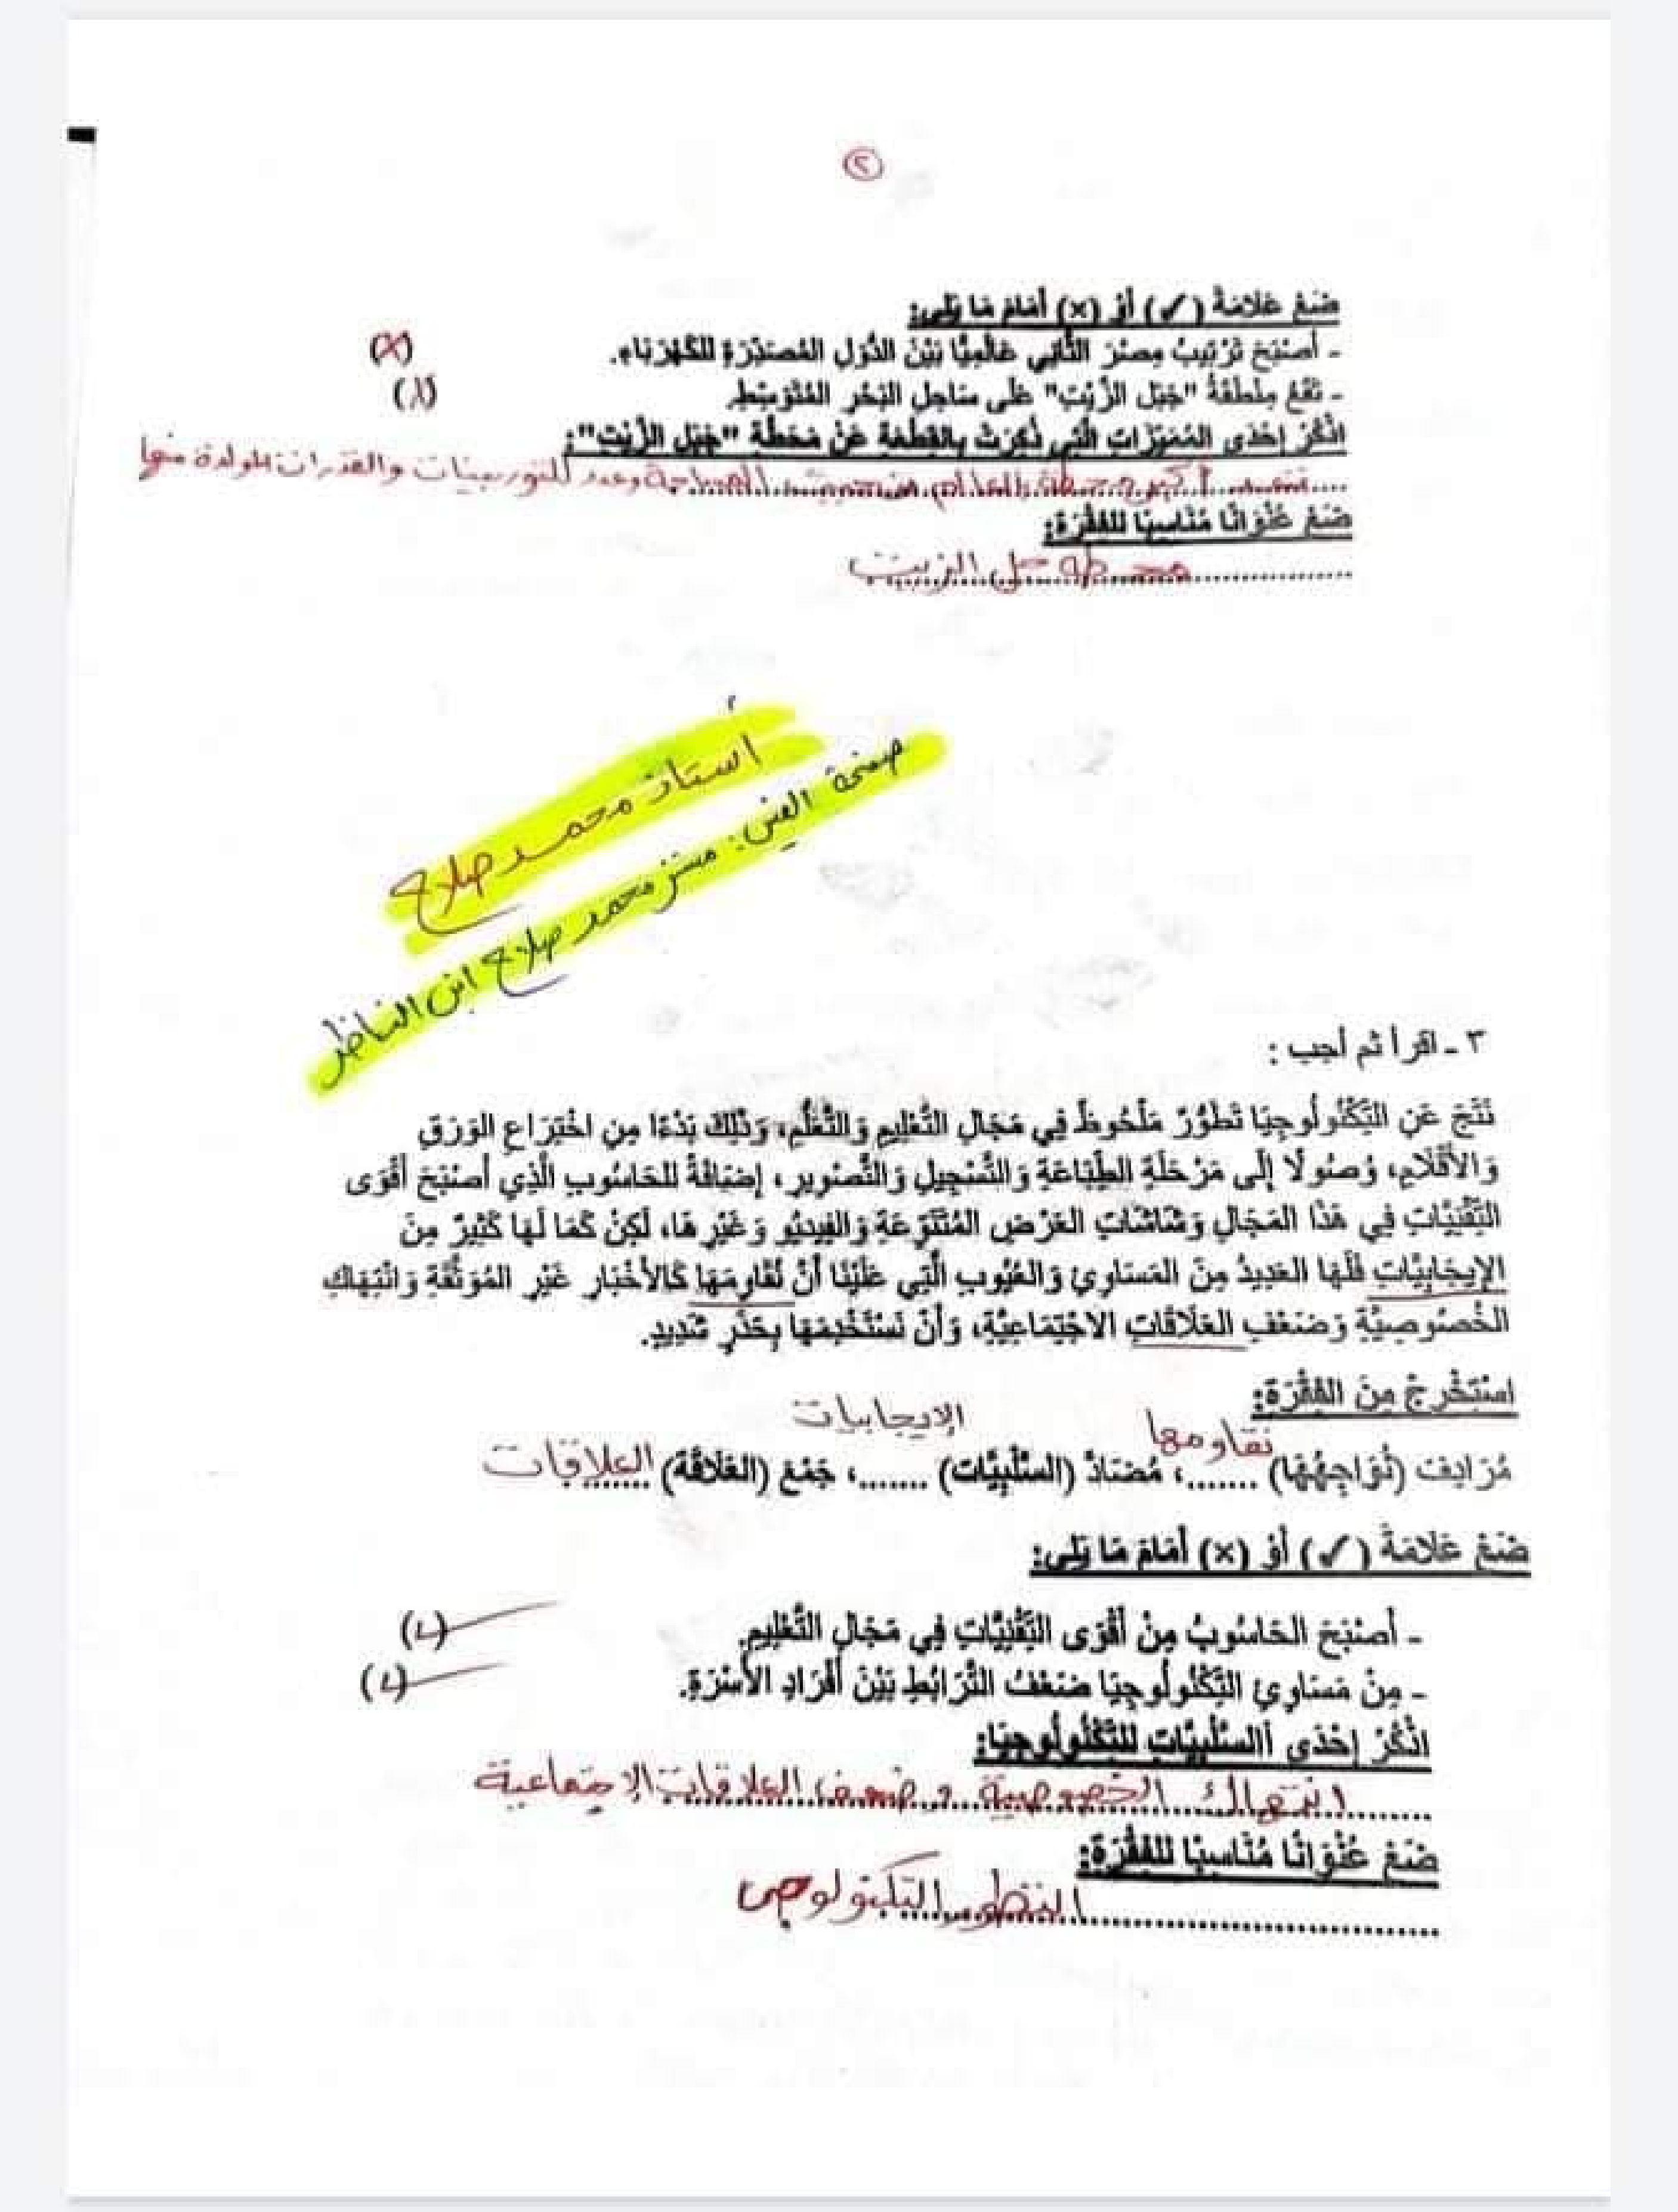 ٢
ضَعْ عَلَامَةَ (✓) أَوْ (×) أَمَامَ مَا يَلِي:
- أَصْبَحَ تَرْتِيبُ مِصْرَ الثَّانِي عَالَمِيًّا بَيْنَ الدُّوَلِ المُصَدِّرَةِ لِلْكَهْرَبَاءِ. (×)
- تَقَعُ مِنْطَقَةُ "جَبَلِ الزَّيْتِ" عَلَى سَاحِلِ البَحْرِ المُتَوَسِّطِ. (×)
اذْكُرْ إِحْدَى المُمَيِّزَاتِ الَّتِي ذُكِرَتْ بِالقِطْعَةِ عَنْ مَحَطَّةِ "جَبَلِ الزَّيْتِ":
تعد أكبر محطة بالعالم من حيث المساحة وعدد التوربينات والقدرات المولدة منها
ضَعْ عُنْوَانًا مُنَاسِبًا لِلْفِقْرَةِ:
محطة جبل الزيت
أستاذ محمد صلاح
صفحة الفيس: مستر محمد صلاح ابن الناظر
٣ - اقرأ ثم أجب :
نَتَجَ عَنِ التِّكْنُولُوجِيَا تَطَوُّرٌ مَلْحُوظٌ فِي مَجَالِ التَّعْلِيمِ وَالتَّعَلُّمِ، وَذَلِكَ بَدْءًا مِنِ اخْتِرَاعِ الوَرَقِ
وَالأَقْلَامِ، وُصُولًا إِلَى مَرْحَلَةِ الطِّبَاعَةِ وَالتَّسْجِيلِ وَالتَّصْوِيرِ، إِضَافَةً لِلحَاسُوبِ الَّذِي أَصْبَحَ أَقْوَى
التِّقْنِيَّاتِ فِي هَذَا المَجَالِ وَشَاشَاتِ العَرْضِ المُتَنَوِّعَةِ وَالفِيدْيُو وَغَيْرِهَا، لَكِنْ كَمَا لَهَا كَثِيرٌ مِنَ
الإِيجَابِيَّاتِ فَلَهَا العَدِيدُ مِنَ المَسَاوِئِ وَالعُيُوبِ الَّتِي عَلَيْنَا أَنْ نُقَاوِمَهَا كَالأَخْبَارِ غَيْرِ المُوَثَّقَةِ وَانْتِهَاكِ
الخُصُوصِيَّةِ وَضَعْفِ العَلَاقَاتِ الاجْتِمَاعِيَّةِ، وَأَنْ نَسْتَخْدِمَهَا بِحَذَرٍ شَدِيدٍ.
اسْتَخْرِجْ مِنَ الفِقْرَةِ:
نقاومها الإيجابيات
مُرَادِفَ (نُوَاجِهُهَا) .......، مُضَادَّ (السَّلْبِيَّات) .......، جَمْعَ (العَلَاقَة) العلاقات
ضَعْ عَلَامَةَ (✓) أَوْ (×) أَمَامَ مَا يَلِي:
- أَصْبَحَ الحَاسُوبُ مِنْ أَقْوَى التِّقْنِيَّاتِ فِي مَجَالِ التَّعْلِيمِ. (✓)
- مِنْ مَسَاوِئِ التِّكْنُولُوجِيَا ضَعْفُ التَّرَابُطِ بَيْنَ أَفْرَادِ الأُسْرَةِ. (✓)
اذْكُرْ إِحْدَى السَّلْبِيَّاتِ لِلتِّكْنُولُوجِيَا:
انتهاك الخصوصية وضعف العلاقات الاجتماعية
ضَعْ عُنْوَانًا مُنَاسِبًا لِلْفِقْرَةِ:
التطور التكنولوجى